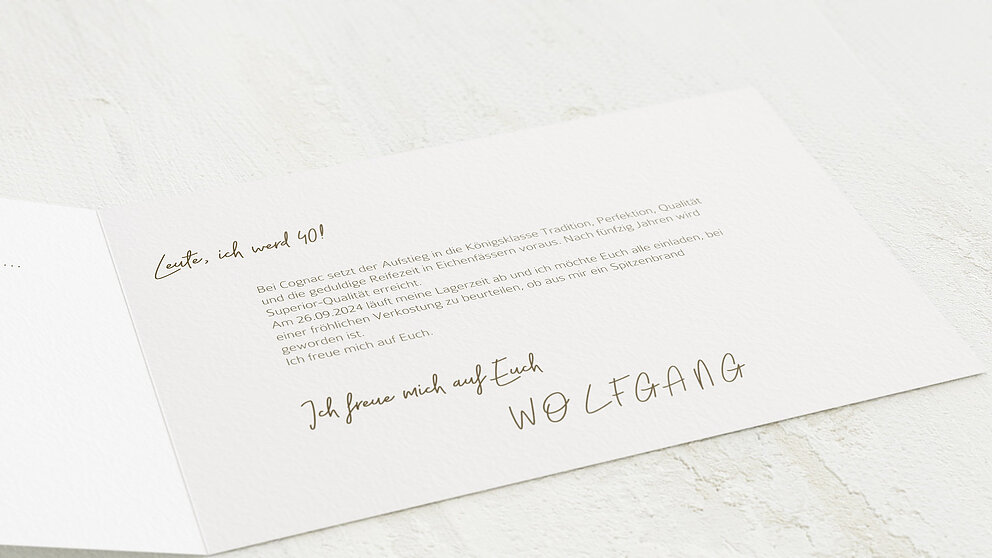 ...
Leute, ich werd 40!
Bei Cognac setzt der Aufstieg in die Königsklasse Tradition, Perfektion, Qualität
und die geduldige Reifezeit in Eichenfässern voraus. Nach fünfzig Jahren wird
Superior-Qualität erreicht.
Am 26.09.2024 läuft meine Lagerzeit ab und ich möchte Euch alle einladen, bei
einer fröhlichen Verkostung zu beurteilen, ob aus mir ein Spitzenbrand
geworden ist.
Ich freue mich auf Euch.
Ich freue mich auf Euch
WOLFGANG